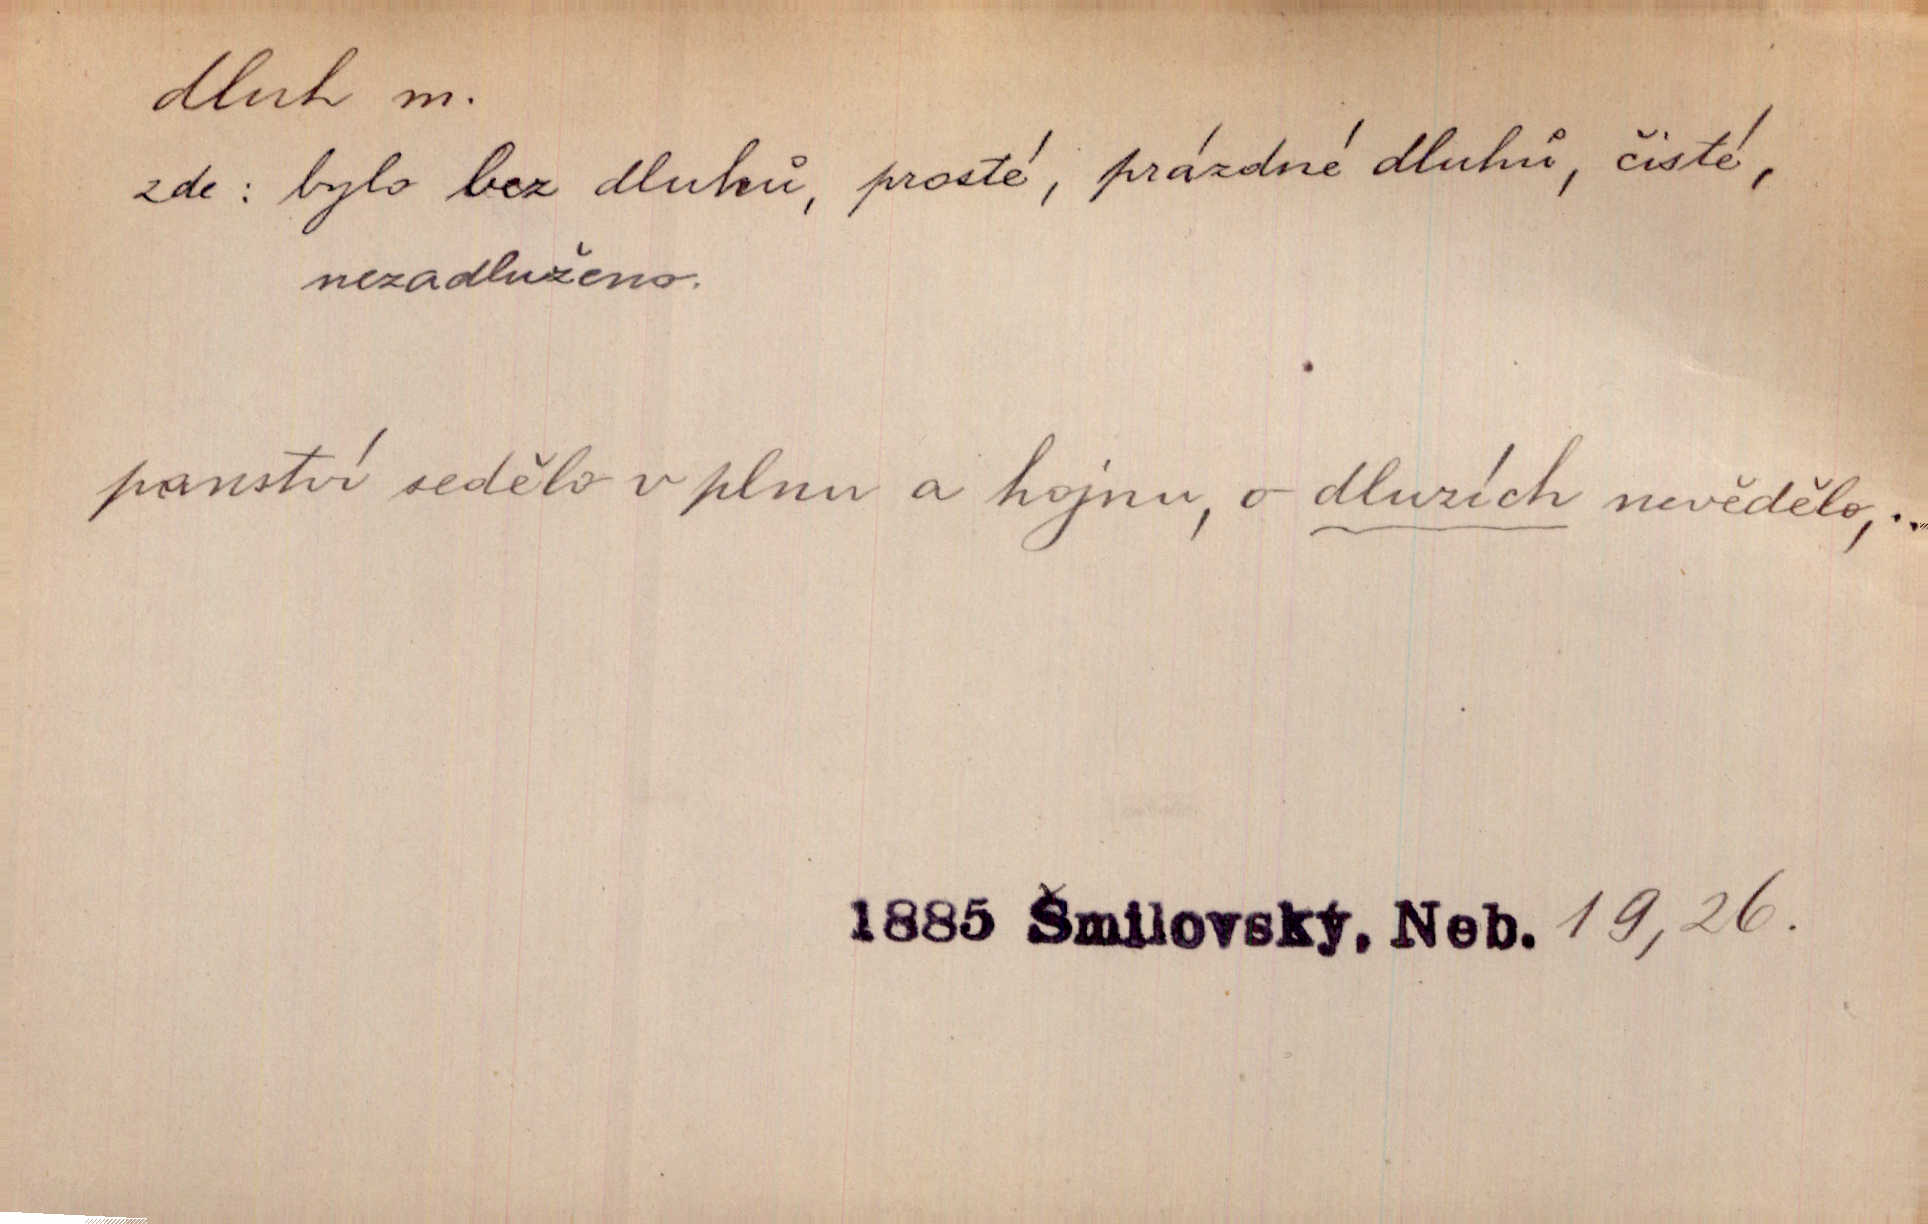 dluh m.
zde: bylo bez dluhů, prosté, prázdné dluhů, čisté,
nezadluženo.
panství sedělo v plnu a hojnu, o dluzích nevědělo,..
1885 Šmilovský, Neb. 19,26.